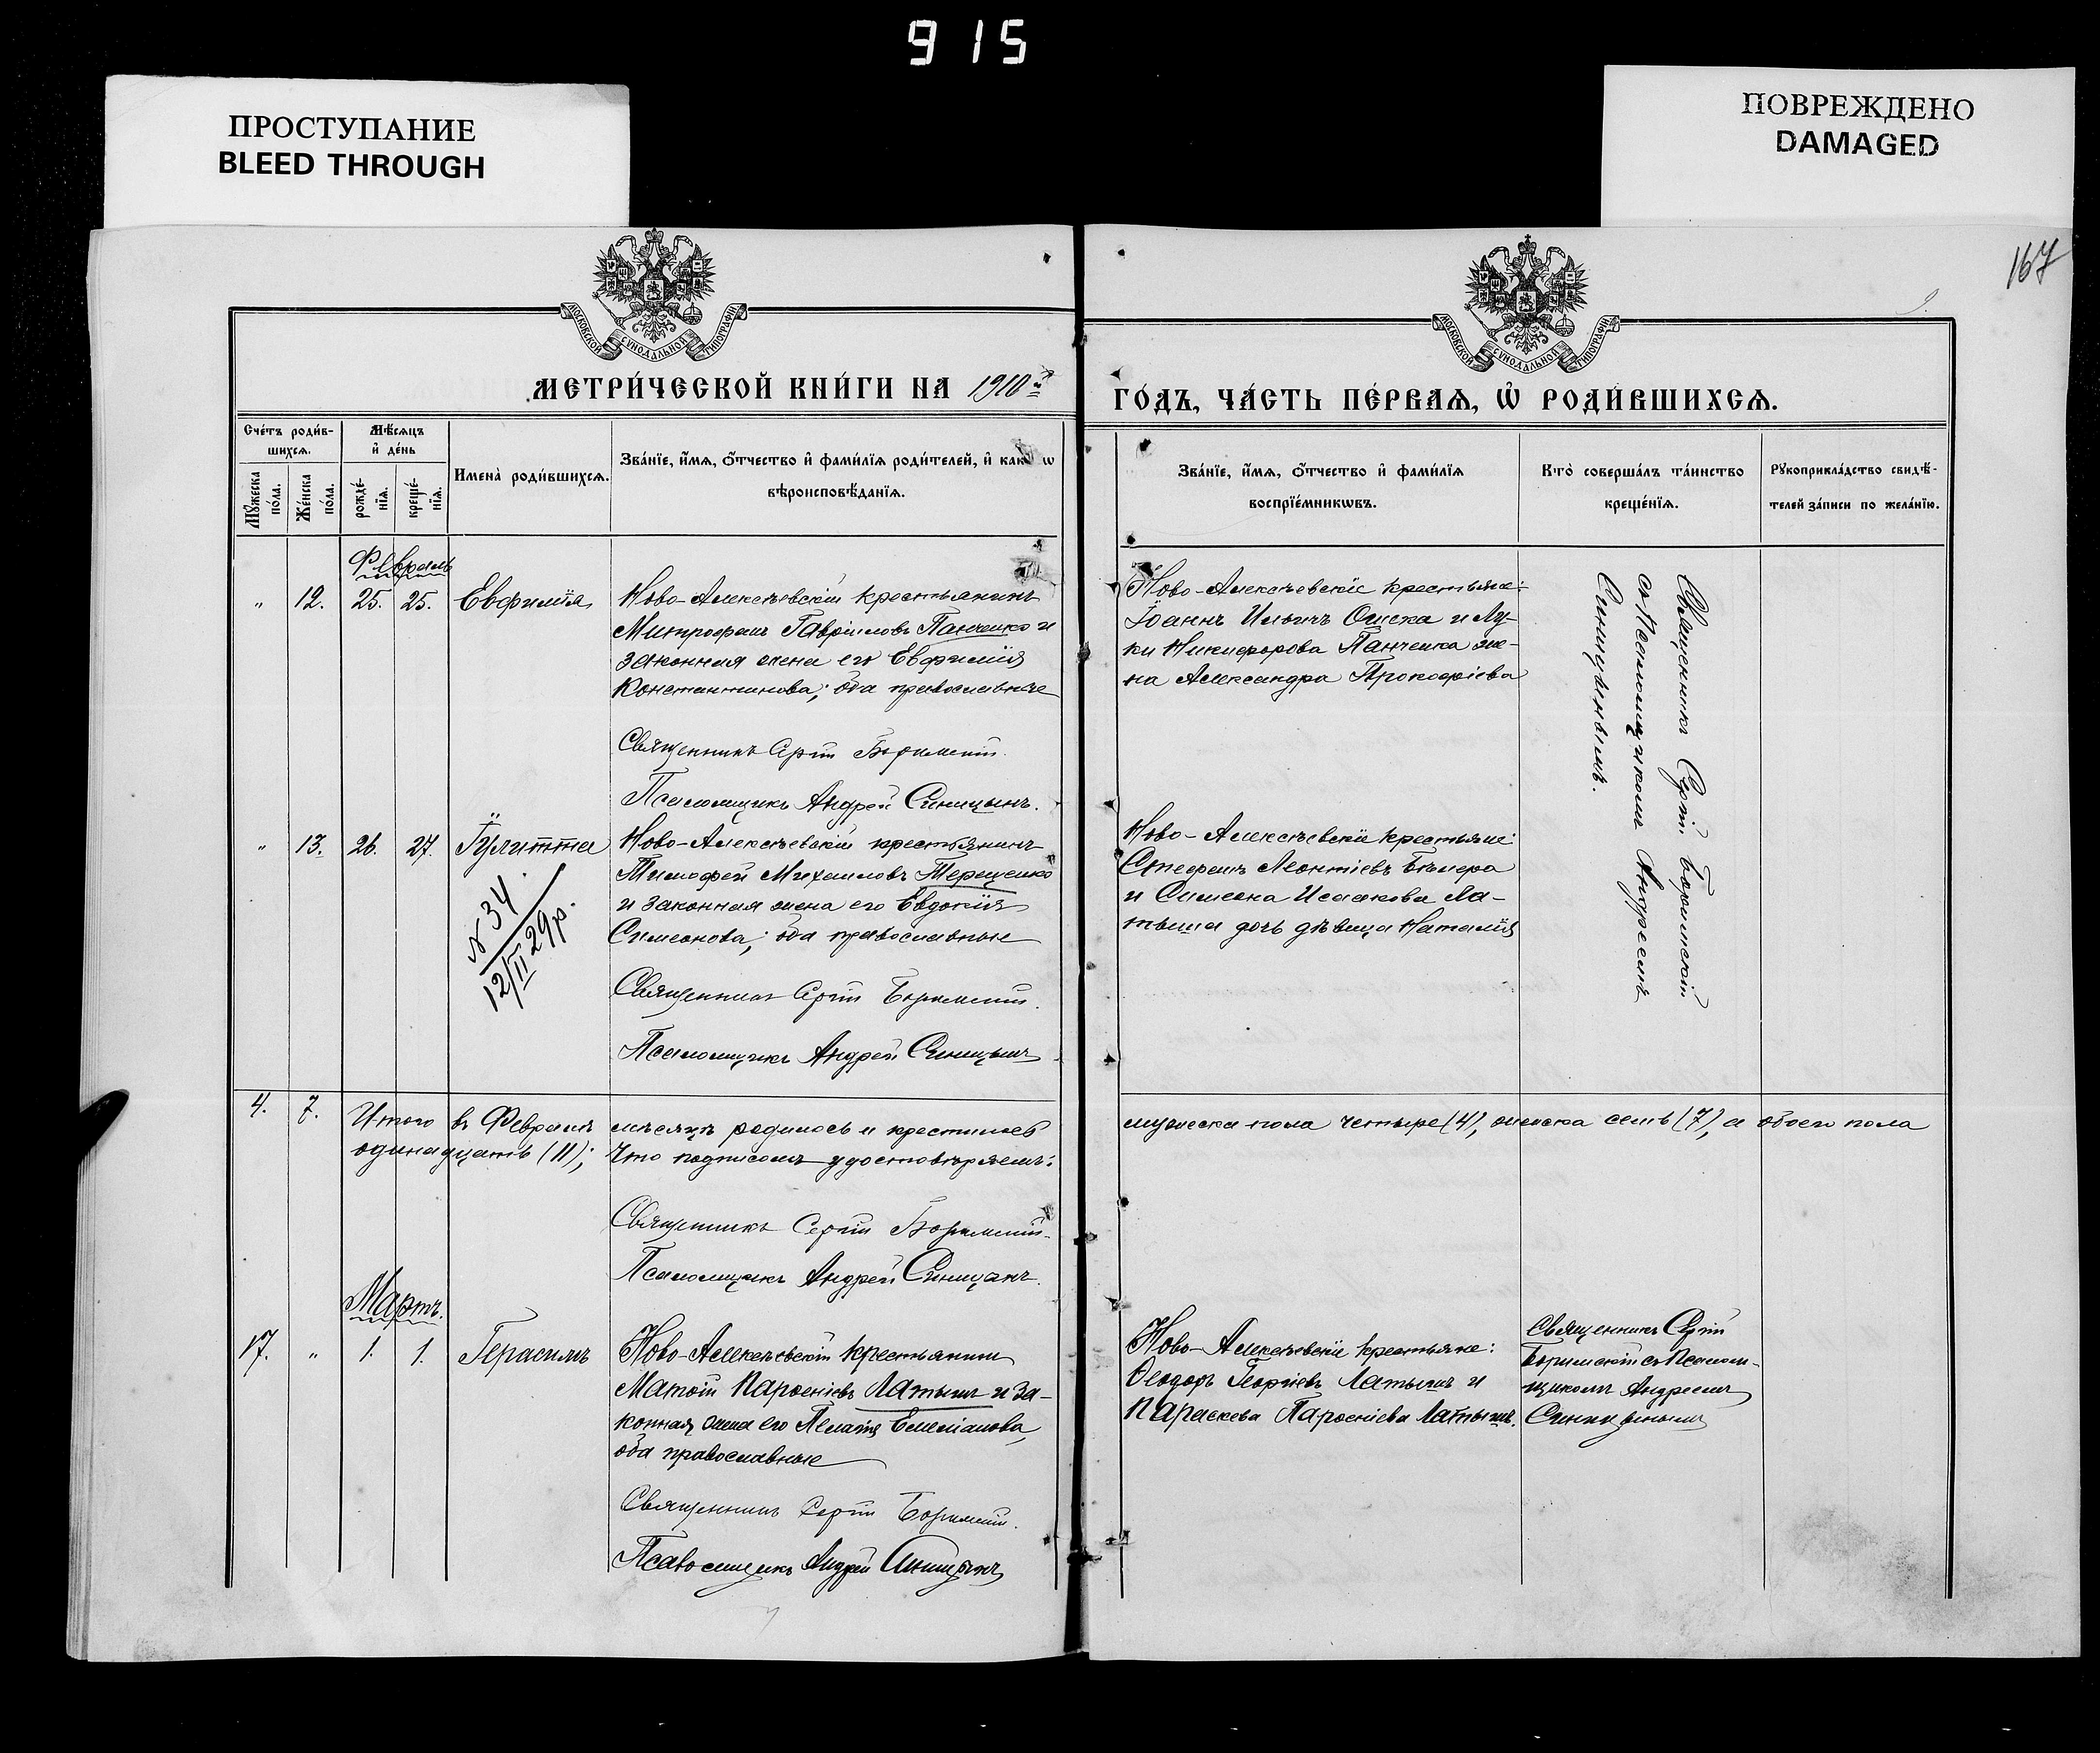 915
ПРОСТУПАНИЕ
BLEED THROUGH
ПОВРЕЖДЕНО
DAMAGED
167
МОСКОВСКОЙ СУНОДАЛЬНОЙ ТИПОГРАФІИ
МОСКОВСКОЙ СУНОДАЛЬНОЙ ТИПОГРАФІИ
МЕТРИ́ЧЕСКОЙ КНИ́ГИ НА 1910 й
ГО́ДЪ, ЧА́СТЬ ПЕ́РВАѦ, Ѡ҆ РОДИ́ВШИХСѦ.
Сче́тъ роди́в-
шихсѧ.
Мѣ́сѧцъ
и҆ де́нь
Мꙋ́жеска
по́ла.
Же́нска
по́ла.
рожде́-
нїѧ.
креще́-
нїѧ.
Имена̀ роди́вшихсѧ.
Зва́нїе, и҆́мѧ, ѻ҆́тчество и҆ фами́лїѧ роди́телей, и҆ како́гѡ
вѣроисповѣ́данїѧ.
Зва́нїе, и҆́мѧ, ѻ҆́тчество и҆ фами́лїѧ
воспрїе́мникѡвъ.
Кто̀ соверша́лъ та́инство
креще́нїѧ.
Рꙋкоприкла́дство свидѣ́-
телей за́писи по жела́нїю.
Февраль
" 12. 25. 25. Евфимія
Ново-Алексѣевскій крестьянинъ
Митрофанъ Гавріиловъ Панченко и
законная жена его Евфимія
Константинова; оба православные
Священникъ Сергій
Псаломщикъ Андрей Синицынъ.
Ново-Алексѣевскіе крестьяне:
Іоаннъ Ильинъ Ошека и Лу-
ки Никифорова Панченка же-
на Александра Прокофіева
Священникъ Сергій
съ Псаломщикомъ Андреемъ
Синицынымъ.
" 13. 26. 27. Іулитта
№ 34.
12/II 29р.
Ново-Алексѣевскій крестьянинъ
Тимофей Михаиловъ Терещенко
и законная жена его Евдокія
Симеонова; оба православные
Священникъ Сергій
Псаломщикъ Андрей Синицынъ
Ново-Алексѣевскіе крестьяне:
Стефанъ Леонтіевъ
и Симеона Исаакова Ла-
тыша дочь дѣвица Наталія
4. 7. Итого въ Февралѣ мѣсяцѣ родилось и крестилось мужеска пола четыре (4), женска семь (7), а обоего пола
одинадцать (11); что подписомъ удостовѣряемъ:
Священникъ Сергій
Псаломщикъ Андрей Синицынъ.
Мартъ.
17. " 1. 1. Герасимъ
Ново-Алексѣевскій крестьянинъ
Матѳій Парѳеніевъ Латышъ и за-
конная жена его Пелагія Емеліанова,
оба православные
Священникъ Сергій
Псаломщикъ Андрей Синицынъ
Ново-Алексѣевскіе крестьяне:
Ѳеодоръ Георгіевъ Латышъ и
Параскева Парѳеніева Латышъ.
Священникъ Сергій
съ Псалом-
щикомъ Андреемъ
Синицынымъ